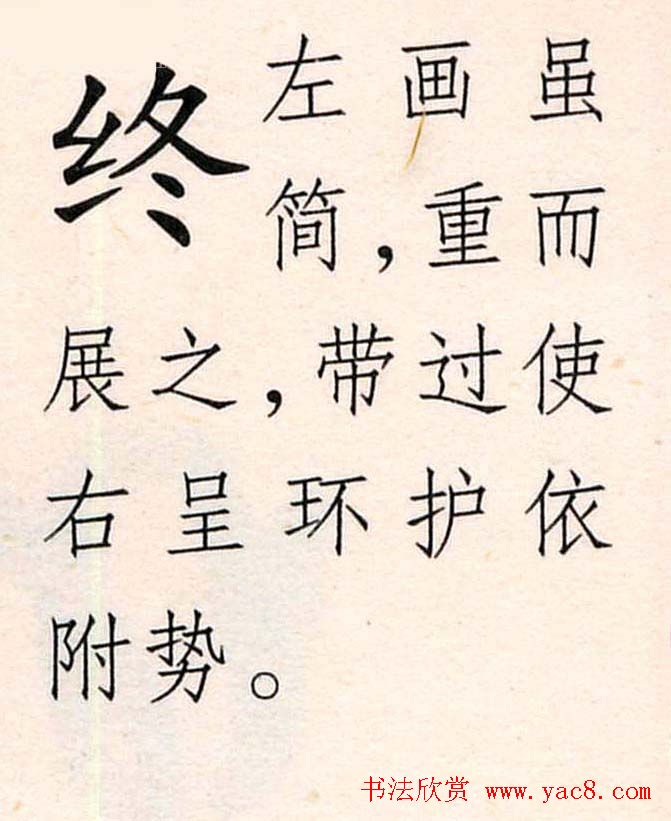 终 左画虽
简,重而
展之,带过使
右呈环护依
附势。
书法欣赏 www.yac8.com